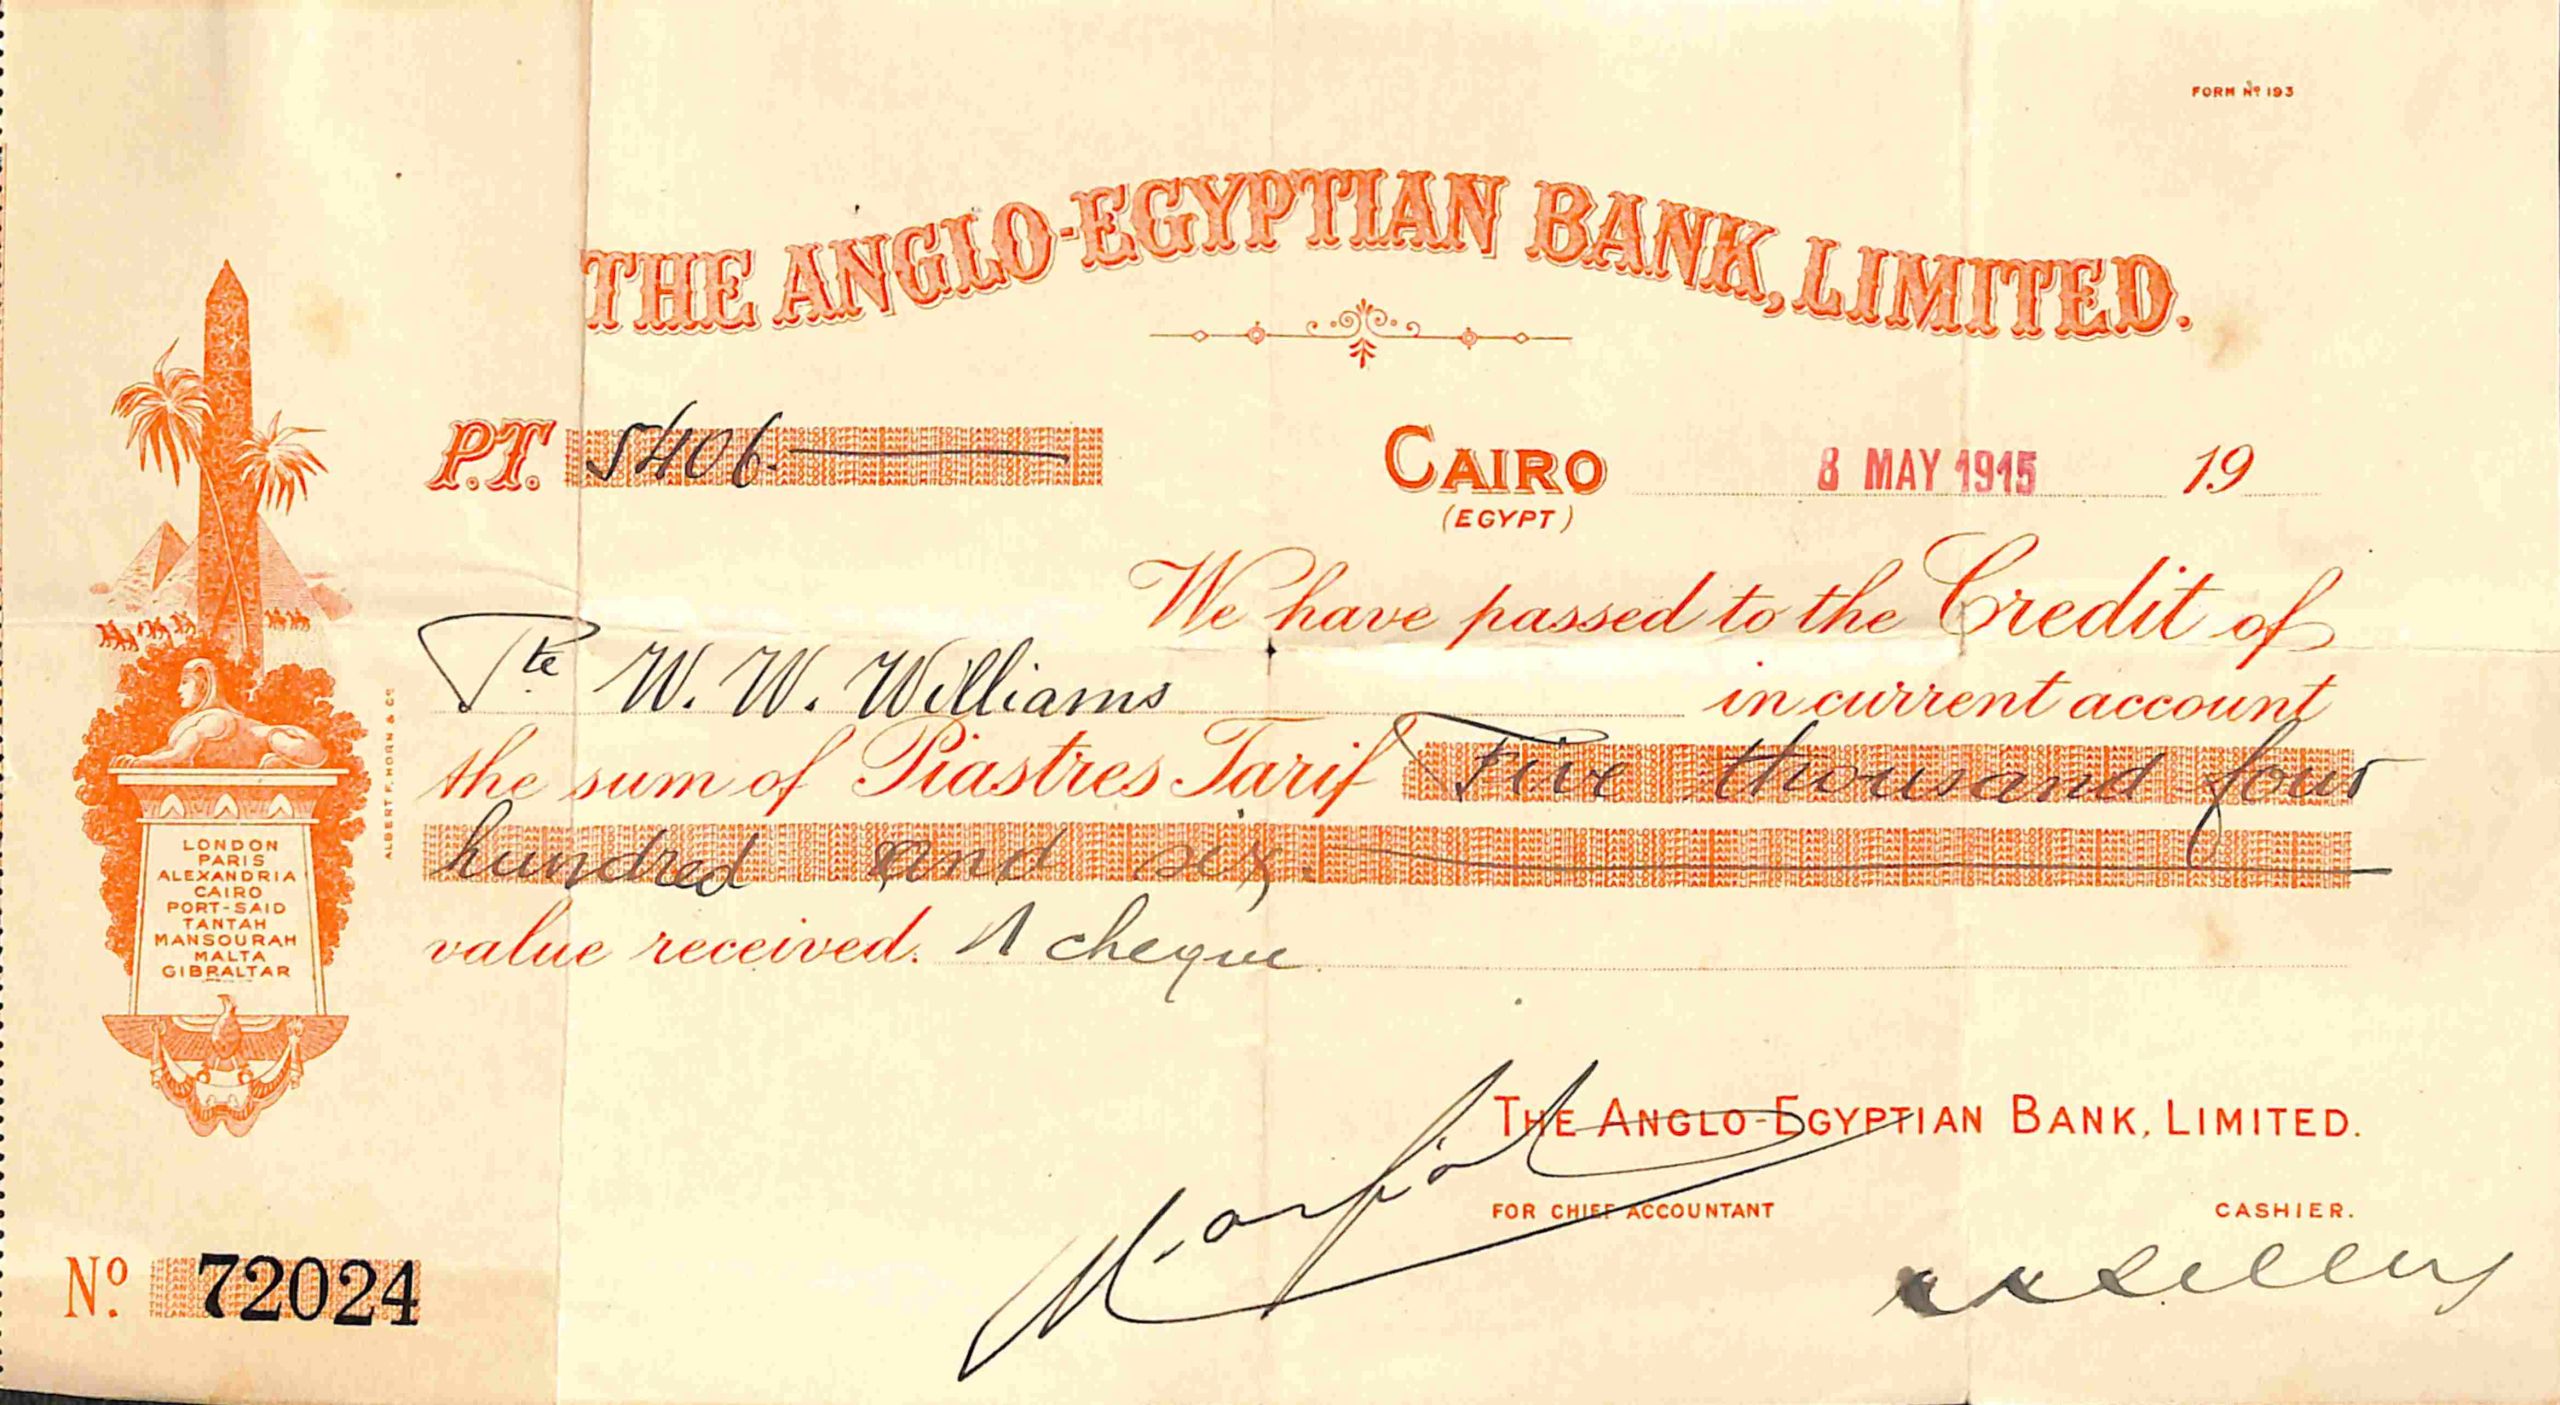 FORM Nº 193
THE ANGLO-EGYPTIAN BANK, LIMITED.
P.T. 5406.
CAIRO 8 MAY 1915 19
(EGYPT)
We have passed to the Credit of
Pte W. W. Williams in current account
the sum of Piastres Tarif Five thousand four
hundred and six.
value received. A cheque
ALBERT F. HORN & Cº
LONDON
PARIS
ALEXANDRIA
CAIRO
PORT-SAID
TANTAH
MANSOURAH
MALTA
GIBRALTAR
THE ANGLO-EGYPTIAN BANK, LIMITED.
FOR CHIEF ACCOUNTANT CASHIER.
Nº. 72024